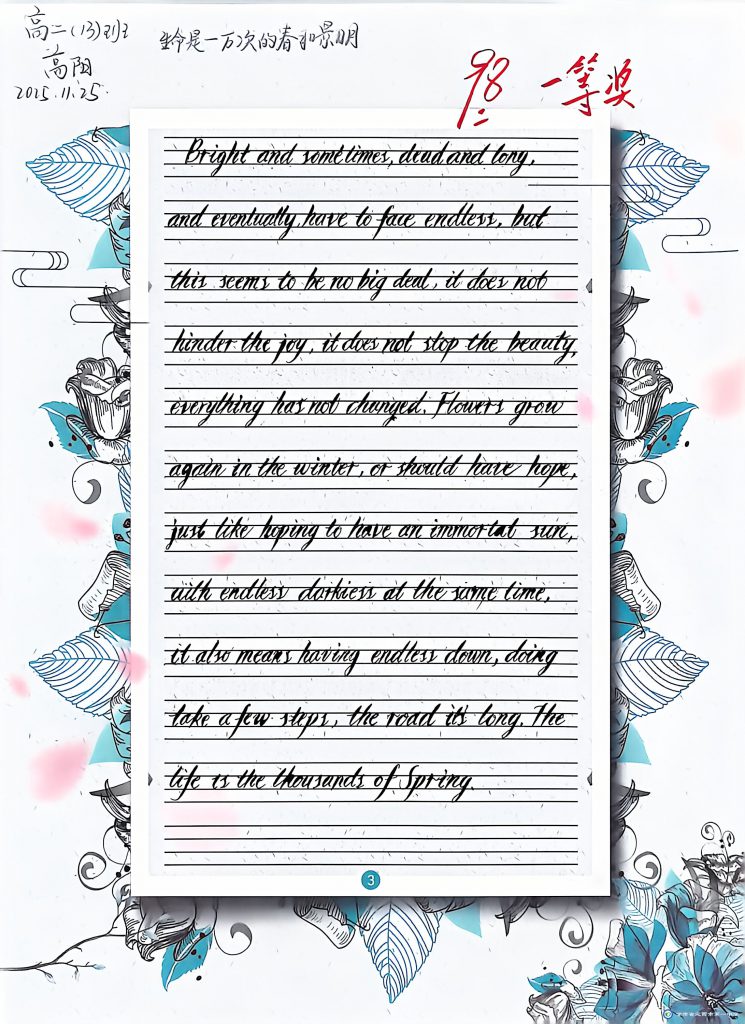 高二(13)班
高阳
2025.11.25.
生命是一万次的春和景明
98
一等奖
Bright and sometimes, dead and long,
and eventually, have to face endless, but
this seems to be no big deal, it does not
hinder the joy, it does not stop the beauty,
everything has not changed. Flowers grow
again in the winter, or should have hope,
just like hoping to have an immortal sun,
with endless darkiess at the same time,
it also means having endless down, doing
take a few steps, the road it's long. The
life is the thousands of Spring
3